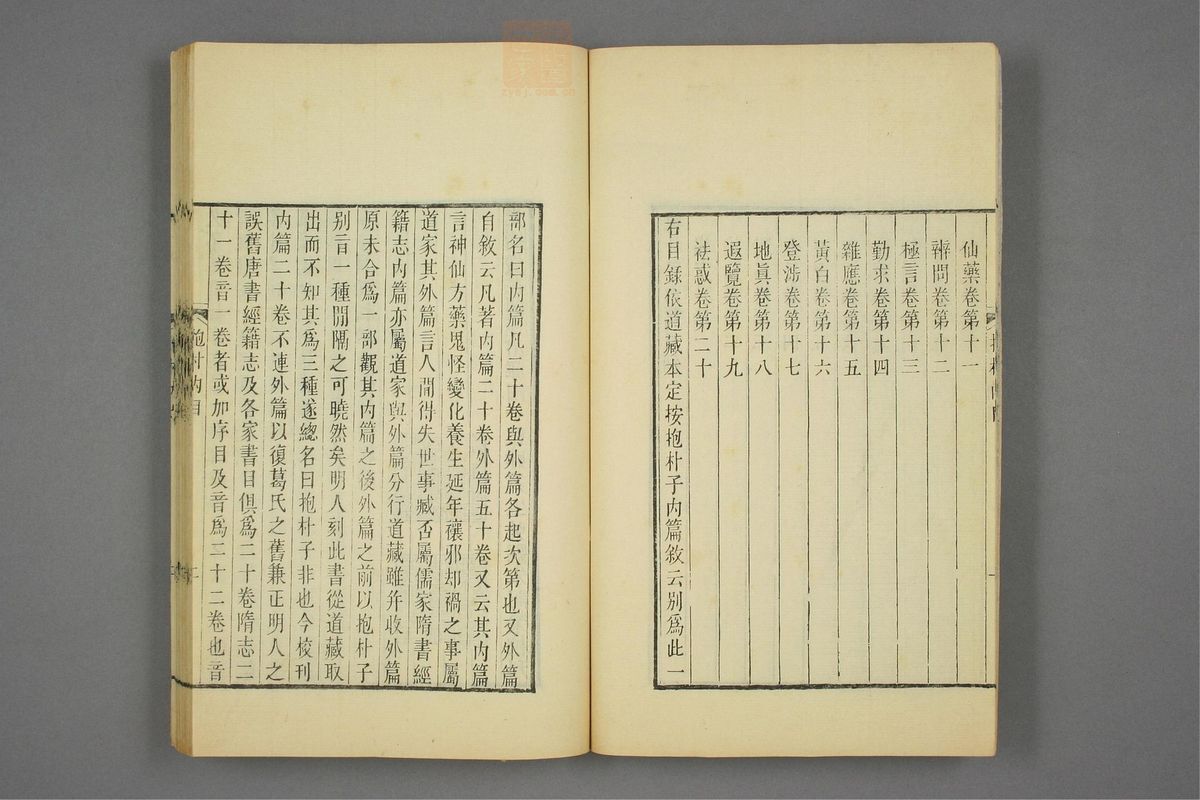 仙藥卷第十一
辨問卷第十二
極言卷第十三
勤求卷第十四
雜應卷第十五
黃白卷第十六
登涉卷第十七
地眞卷第十八
遐覽卷第十九
祛惑卷第二十
右目錄依道藏本定按抱朴子內篇敘云别爲此一
部名曰內篇凡二十卷與外篇各起次第也又外篇
自敘云凡著內篇二十卷外篇五十卷又云其內篇
言神仙方藥鬼怪變化養生延年禳邪却禍之事屬
道家其外篇言人閒得失世事臧否屬儒家隋書經
籍志內篇亦屬道家與外篇分行道藏雖并收外篇
原未合爲一部觀其內篇之後外篇之前以抱朴子
别言一種閒隔之可曉然矣明人刻此書從道藏取
出而不知其爲三種遂總名曰抱朴子非也今校刊
內篇二十卷不連外篇以復葛氏之舊兼正明人之
誤舊唐書經籍志及各家書目俱爲二十卷隋志二
十一卷音一卷者或加序目及音爲二十二卷也音
抱朴內目
二
zysj.com.cn